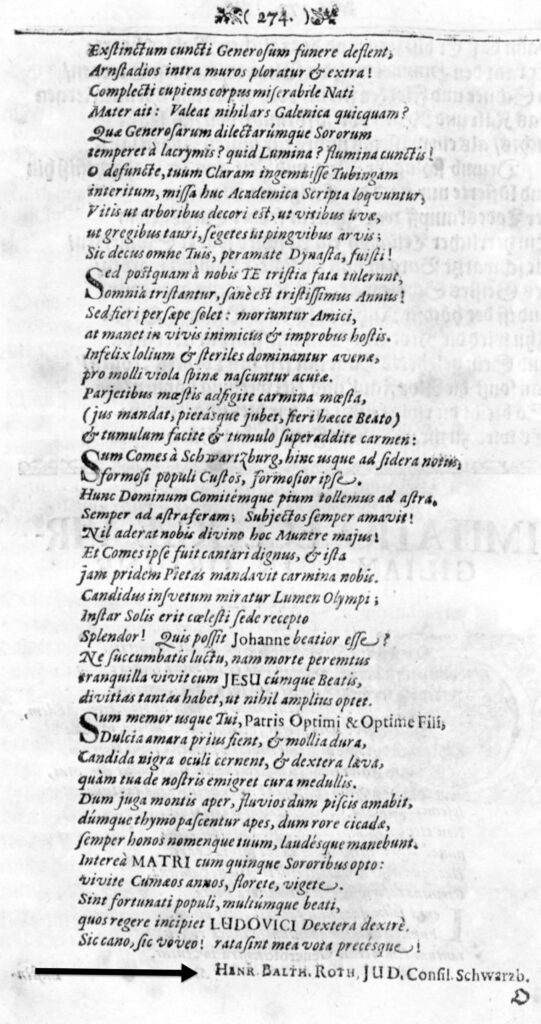 ( 274. )
Exstinctum cuncti Generosum funere deflent;
Arnstadios intra muros ploratur & extra!
Complecti cupiens corpus miserabile Nati
Mater ait: Valeat nihil ars Galenica quicquam?
Quæ Generosarum dilectarúmque Sororum
temperet à lacrymis? quid Lumina? flumina cunctis!
O defuncte, tuum Claram ingemuisse Tubingam
interitum, missa huc Academica Scripta loqvuntur,
Vitis ut arboribus decori est, ut vitibus uvæ,
ut gregibus tauri, segetes ut pingvibus arvis;
Sic decus omne Tuis, peramate Dynasta, fuisti!
Sed postquam à nobis TE tristia fata tulerunt,
Somnia tristantur, sanè est tristissimus Annus!
Sed fieri persæpe solet: moriuntur Amici,
at manet in vivis inimicus & improbus hostis.
Infelix lolium & steriles dominantur avenæ,
pro molli viola spinæ nascuntur acutæ.
Parjetibus mæstis adfigite carmina mæsta,
(jus mandat, pietásque jubet, fieri hæcce Beato)
& tumulum facite & tumulo superaddite carmen:
Sum Comes à Schwartzburg, hinc usque ad sidera notus,
formosi populi Custos, formosior ipse.
Hunc Dominum Comitémque pium tollemus ad astra.
Semper ad astra feram; Subjectos semper amavit!
Nil aderat nobis divino hoc Munere majus!
Et Comes ipse fuit cantari dignus, & ista
jam pridem Pietas mandavit carmina nobis.
Candidus insvetum miratur Lumen Olympi;
Instar Solis erit cœlesti sede recepto
Splendor! Quis possit Johanne beatior esse?
Ne succumbatis luctu, nam morte peremtus
tranquilla vivit cum JESU cúmque Beatis,
divitias tantas habet, ut nihil amplius optet.
Sum memor usque Tui, Patris Optimi & Optime Fili,
Dulcia amara prius fient, & mollia dura,
Candida nigra oculi cernent, & dextera læva,
quàm tua de nostris emigret cura medullis.
Dum juga montis aper, fluvios dum piscis amabit,
dúmque thymo pascentur apes, dum rore cicadæ,
semper honos nomenque tuum, laudésque manebunt.
Intereà MATRI cum quinque Sororibus opto:
vivite Cumæos annos, florete, vigete.
Sint fortunati populi, multúmque beati,
quos regere incipiet LUDOVICI Dextera dextrè.
Sic cano, sic voveo! rata sint mea vota precésque!
HENR. BALTH. ROTH, JUD. Consil. Schwarzb.